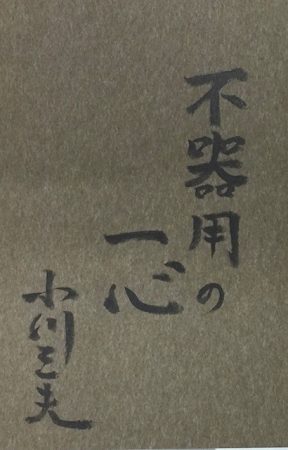 不器用の
一心
小川三夫